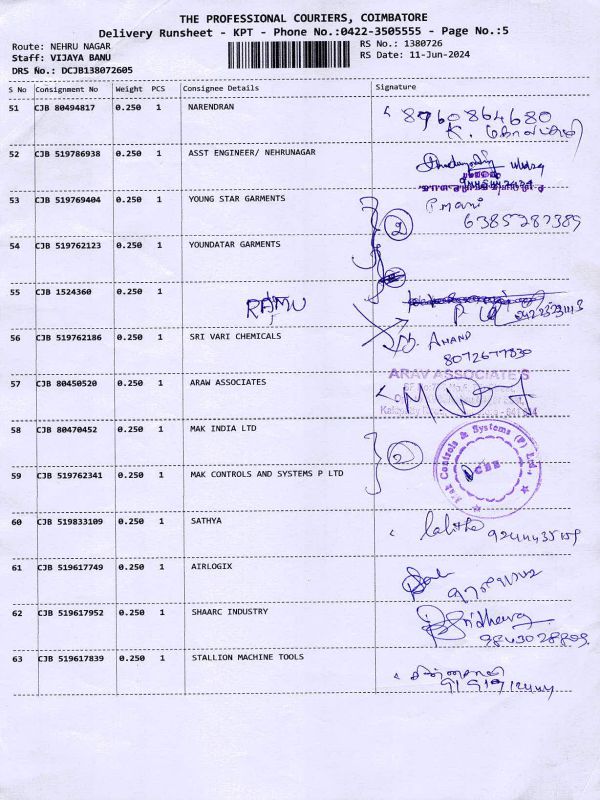 THE PROFESSIONAL COURIERS, COIMBATORE
Delivery Runsheet - KPT - Phone No.:0422-3505555 - Page No.:5
Route: NEHRU NAGAR RS No.: 1380726
Staff: VIJAYA BANU RS Date: 11-Jun-2024
DRS No.: DCJB138072605
S No Consignment No Weight PCS Consignee Details Signature
51 CJB 80494817 0.250 1 NARENDRAN 8760864680
K.
52 CJB 519786938 0.250 1 ASST ENGINEER/ NEHRUNAGAR
53 CJB 519769404 0.250 1 YOUNG STAR GARMENTS P mani
2 6385287389
54 CJB 519762123 0.250 1 YOUNDATAR GARMENTS
55 CJB 1524360 0.250 1 RAMU
56 CJB 519762186 0.250 1 SRI VARI CHEMICALS ANAND
8072677830
57 CJB 80450520 0.250 1 ARAW ASSOCIATES ARAV ASSOCIATES
58 CJB 80470452 0.250 1 MAK INDIA LTD 2
59 CJB 519762341 0.250 1 MAK CONTROLS AND SYSTEMS P LTD Mak Controls & Systems (P) Ltd., CBE
60 CJB 519833109 0.250 1 SATHYA Lalitha
61 CJB 519617749 0.250 1 AIRLOGIX
62 CJB 519617952 0.250 1 SHAARC INDUSTRY Sridharan
9843028809
63 CJB 519617839 0.250 1 STALLION MACHINE TOOLS